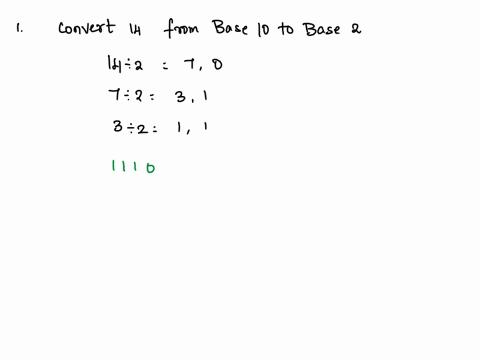 1. Convert 14 from Base 10 to Base 2
14÷2 = 7, 0
7÷2= 3, 1
3÷2= 1, 1
1110